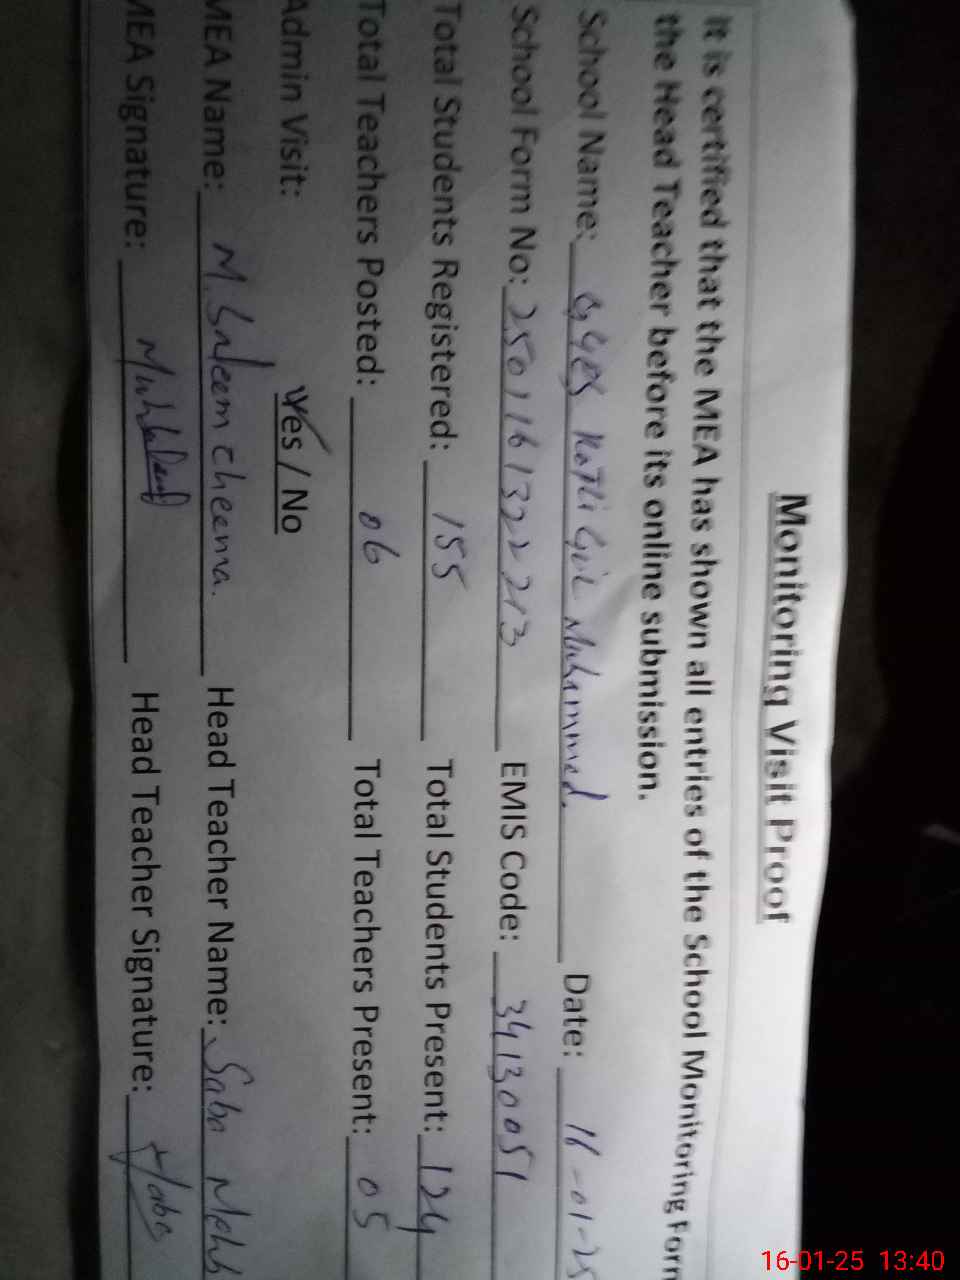 Monitoring Visit Proof
It is certified that the MEA has shown all entries of the School Monitoring Form
the Head Teacher before its online submission.
School Name: GGES Kotli Gul Muhammad. Date: 16-01-25
School Form No: 2501161322213 EMIS Code: 34130051
Total Students Registered: 155 Total Students Present: 124
Total Teachers Posted: 06 Total Teachers Present: 05
Admin Visit: Yes / No
MEA Name: M. Saleem cheema. Head Teacher Name: Saba
MEA Signature: Head Teacher Signature:
16-01-25 13:40